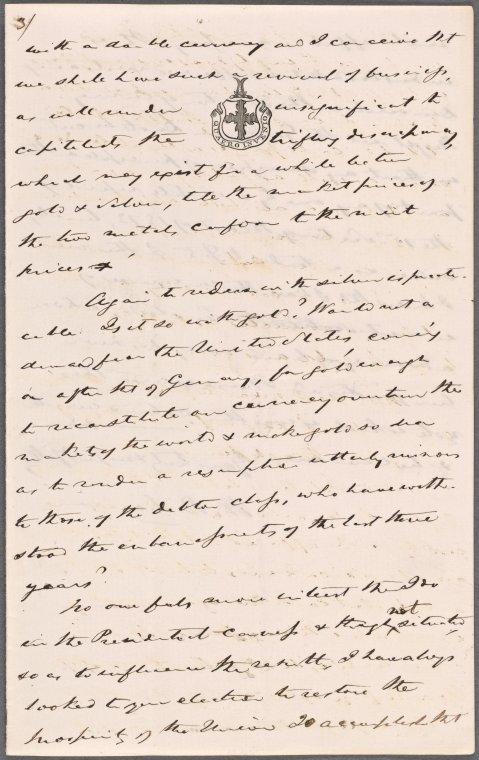 3/
with a double currency and I conceive tht
we shall have such a revival of business,
as will render insignificant to
capitalists the trifling discrepancy,
which may exist for a while between
gold & silver, till the market prices of
the two metals conform to the mint
prices.
Again to redeem with silver is practi-
cable. Is it so with gold? Would not a
demand from the United States, coming
on after tht of Germany, for gold enough
to reconstitute our currency overturn the
markets of the world & make gold so dear
as to render a resumption utterly ruinous
to those, of the debtor class, who have with-
stood the embarrassments of the last three
years?
No one feels more interest than I do
in the Presidential canvass & though not situated,
so as to influence the result, I have always
looked to your election to restore the
prosperity of the Union. To accomplish tht